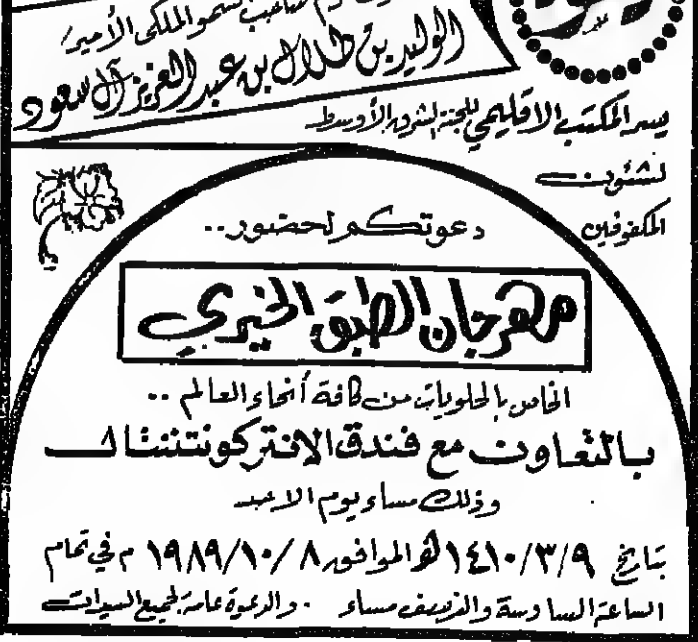 صاحب السمو الملكي الأمير
الوليد بن طلال بن عبد العزيز آل سعود
يسر المكتب الاقليمي للجنة الشرق الأوسط
لشئون
المكفوفين
دعوتكم لحضور..
مهرجان الطبق الخيري
الخاص بالحلويات من كافة أنحاء العالم ..
بالتعاون مع فندق الانتركونتننتال
وذلك مساء يوم الاحد
بتاريخ ١٤١٠/٣/٩هـ الموافق ١٩٨٩/١٠/٨م في تمام
الساعة السادسة والنصف مساء . والدعوة عامة لجميع السيدات